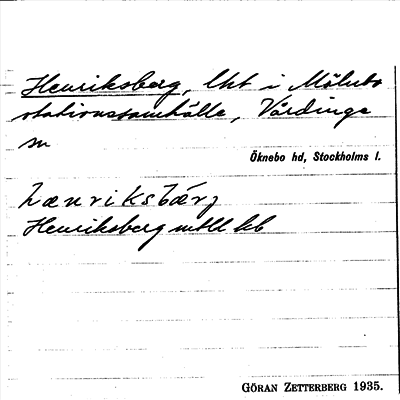 Henriksberg, lht i Mölnbo
stationssamhälle, Vårdinge
sn
Öknebo hd, Stockholms l.
hænriksbærj
Henriksberg mtll kb
GÖRAN ZETTERBERG 1935.